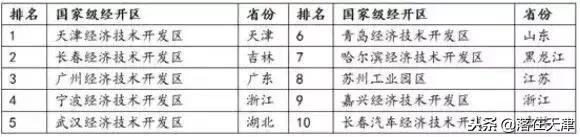 排名 国家级经开区 省份 排名 国家级经开区 省份
1 天津经济技术开发区 天津 6 青岛经济技术开发区 山东
2 长春经济技术开发区 吉林 7 哈尔滨经济技术开发区 黑龙江
3 广州经济技术开发区 广东 8 苏州工业园区 江苏
4 宁波经济技术开发区 浙江 9 嘉兴经济技术开发区 浙江
5 武汉经济技术开发区 湖北 10 长春汽车经济技术开发区
头条@潜在天津